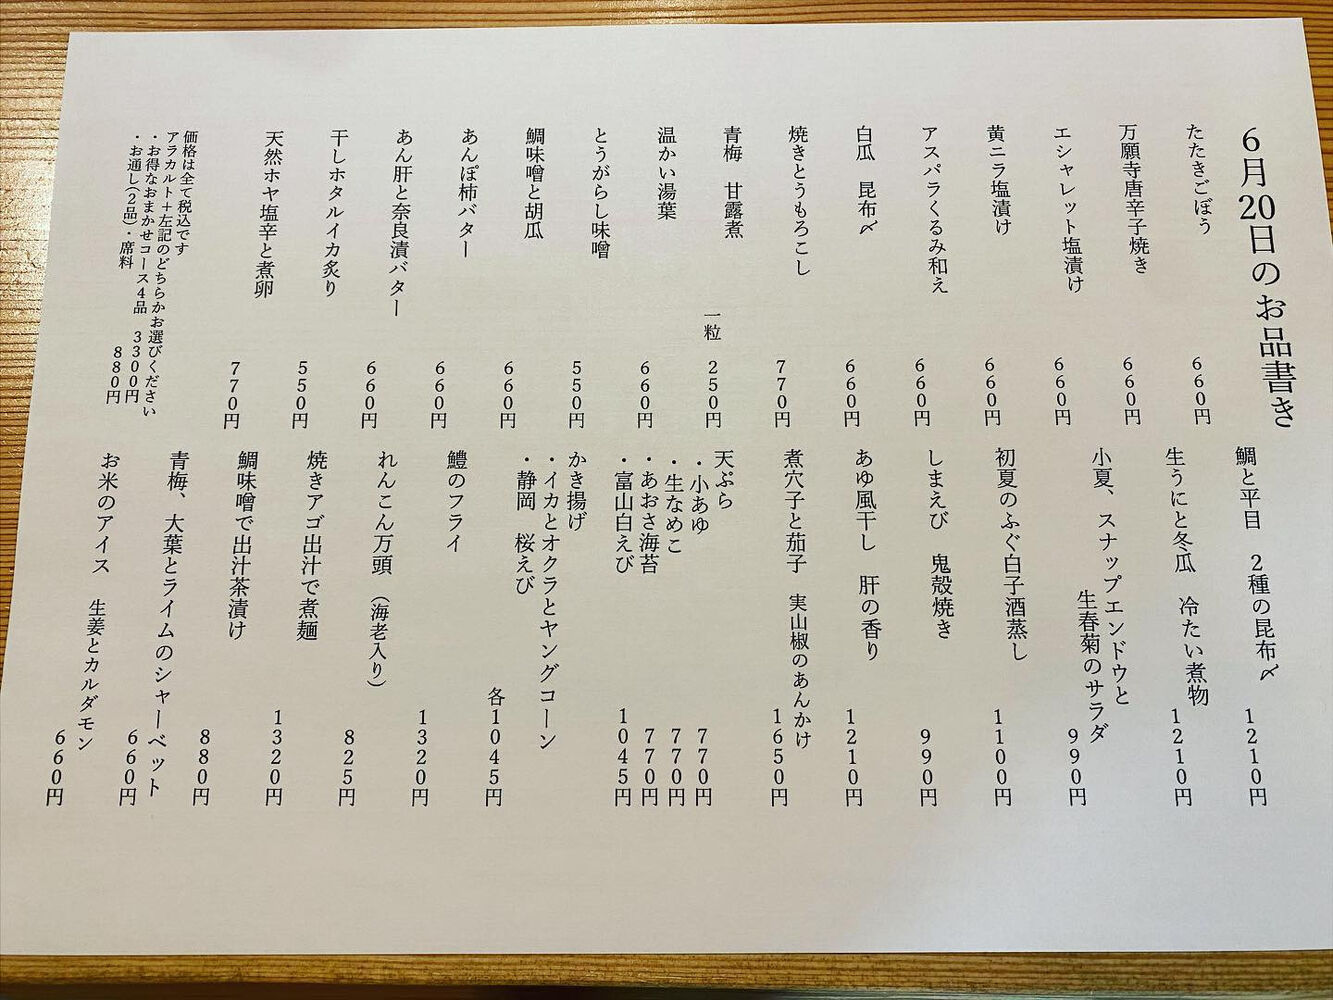 6月20日のお品書き
たたきごぼう 660円
万願寺唐辛子焼き 660円
エシャレット塩漬け 660円
黄ニラ塩漬け 660円
アスパラくるみ和え 660円
白瓜 昆布〆 660円
焼きとうもろこし 770円
青梅 甘露煮 一粒 250円
温かい湯葉 660円
とうがらし味噌 550円
鯛味噌と胡瓜 660円
あんぽ柿バター 660円
あん肝と奈良漬バター 660円
干しホタルイカ炙り 550円
天然ホヤ塩辛と煮卵 770円
価格は全て税込です
アラカルト+左記のどちらかお選びください
・お得なおまかせコース4品 3300円
・お通し(2品)・席料 880円
鯛と平目 2種の昆布〆 1210円
生うにと冬瓜 冷たい煮物 1210円
小夏、スナップエンドウと
生春菊のサラダ 990円
初夏のふぐ白子酒蒸し 1100円
しまえび 鬼殻焼き 990円
あゆ風干し 肝の香り 1210円
煮穴子と茄子 実山椒のあんかけ 1650円
天ぷら
・小あゆ 770円
・生なめこ 770円
・あおさ海苔 770円
・富山白えび 1045円
かき揚げ
・イカとオクラとヤングコーン
・静岡 桜えび 各1045円
鱧のフライ 1320円
れんこん万頭(海老入り) 825円
焼きアゴ出汁で煮麺 1320円
鯛味噌で出汁茶漬け 880円
青梅、大葉とライムのシャーベット 660円
お米のアイス 生姜とカルダモン 660円